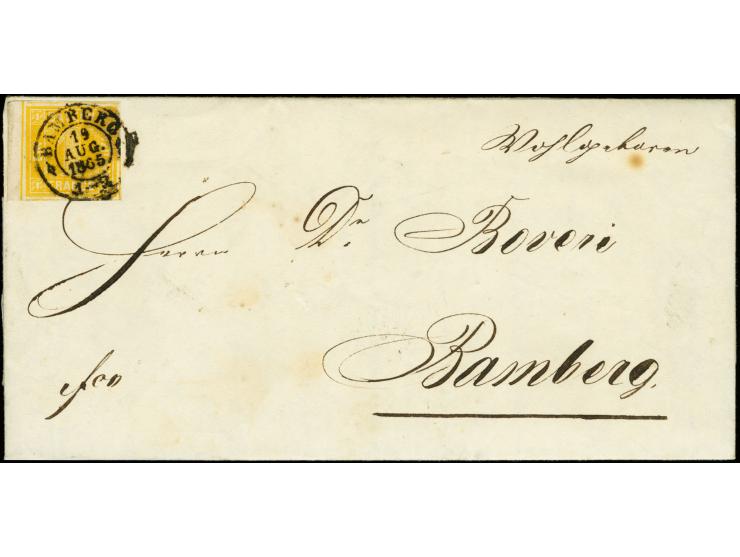 BAMBERG
19
AUG.
1865
Wohlgeboren
Herrn Dr. Boveri
Bamberg.
fco